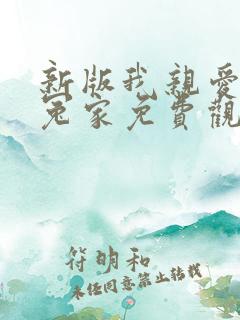 新版我親愛
冤家免費觀
符明和
未任同意禁止转载